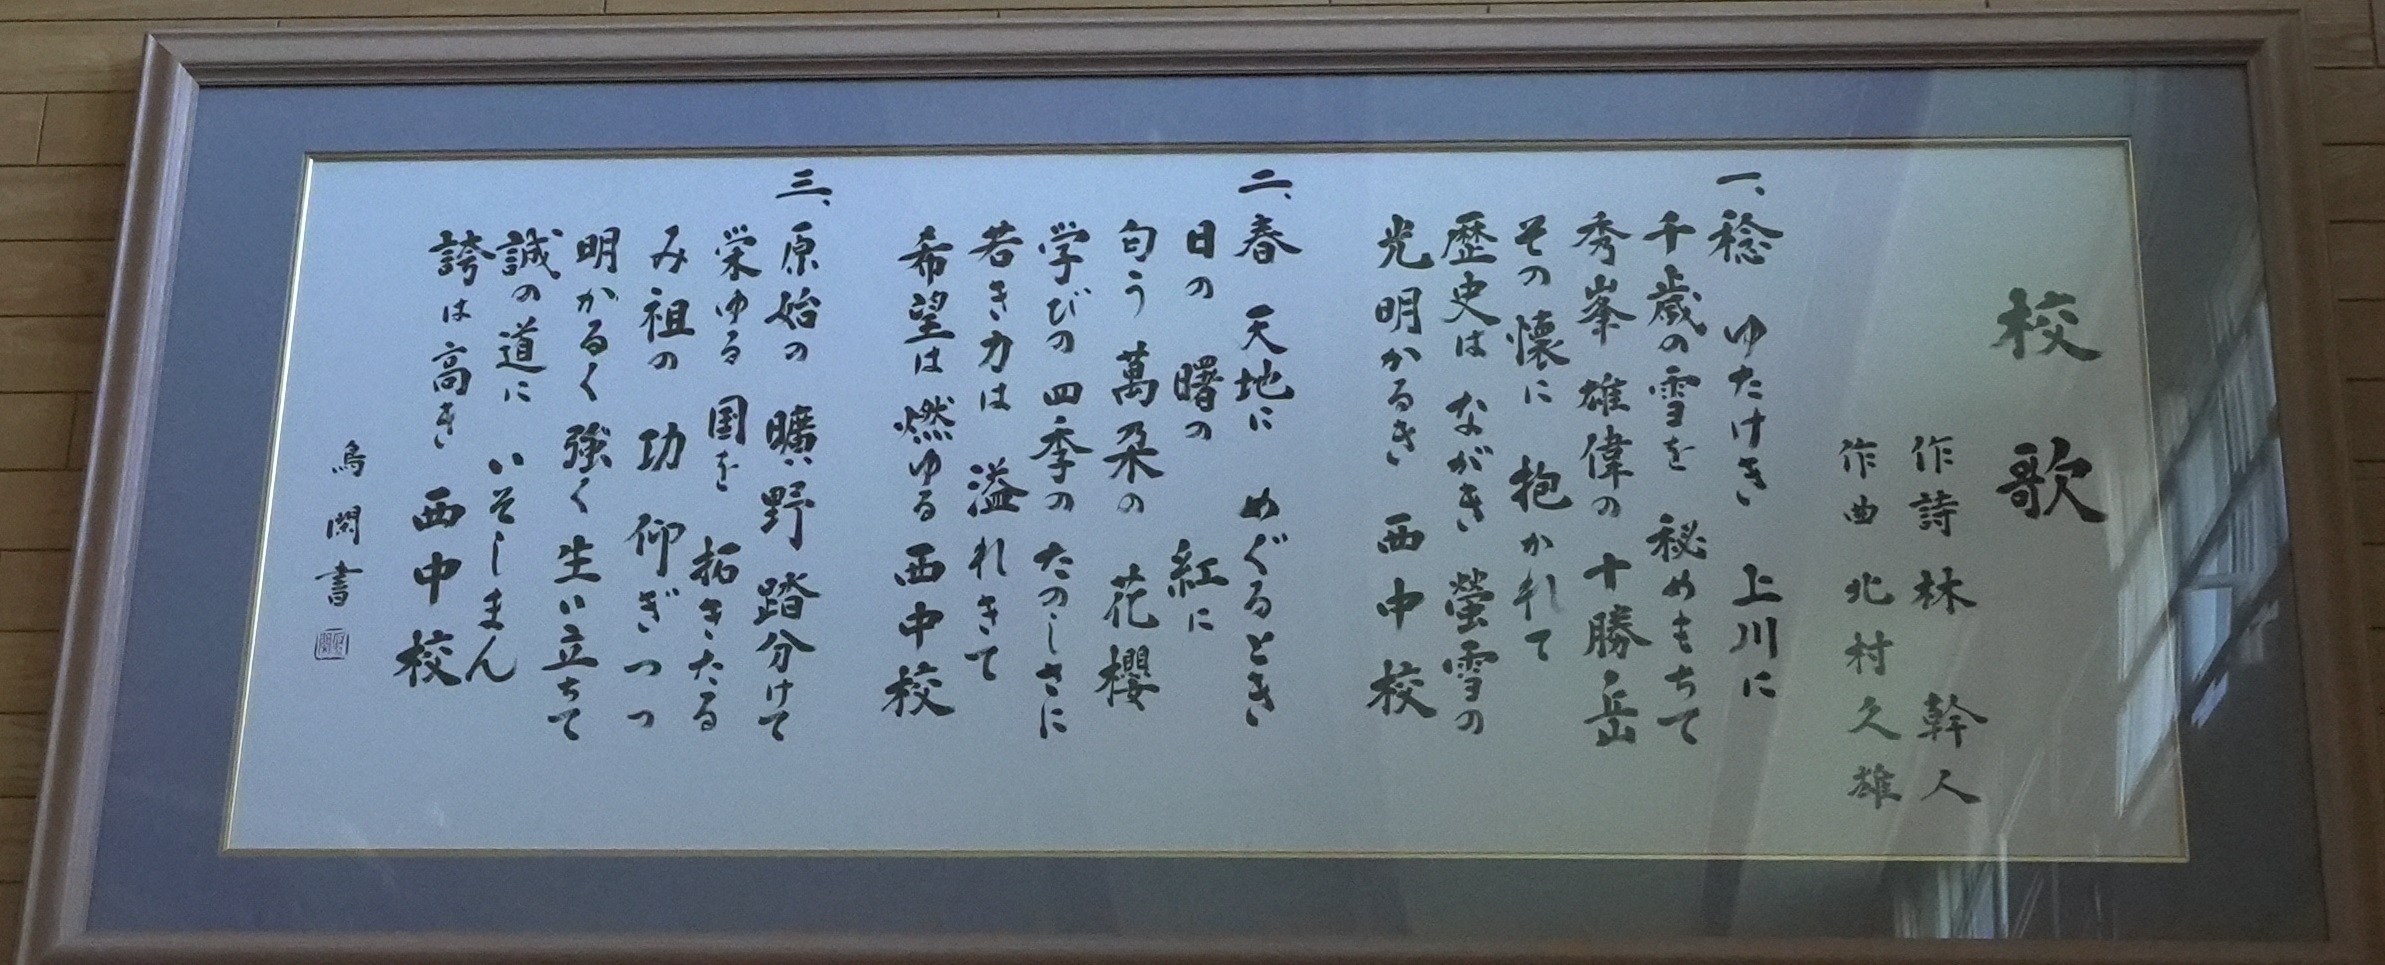 校歌
作詩 林 幹人
作曲 北村久雄
一、稔 ゆたけき 上川に
千歳の雪を 秘めもちて
秀峯 雄偉の 十勝岳
その懐に 抱かれて
歴史は ながき 螢雪の
光明かるき 西中校
二、春 天地に めぐるとき
日の 曙の 紅に
匂う 萬朶の 花櫻
学びの四季の たのしさに
若き力は 溢れきて
希望は燃ゆる 西中校
三、原始の 曠野 踏分けて
栄ゆる 国を 拓きたる
み祖の 功 仰ぎつつ
明かるく 強く 生い立ちて
誠の道に いそしまん
誇は高き 西中校
書